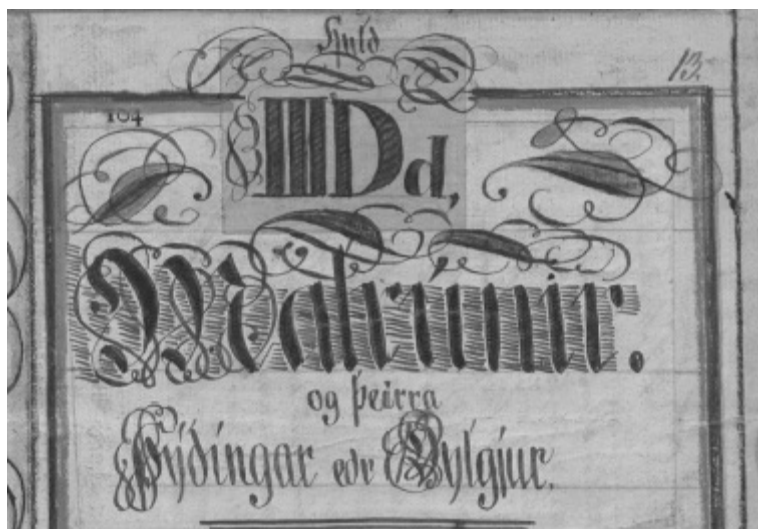 13.
104
IIIDd,
Malrúnir.
og þeirra
Þýðingar eðr Dylgjur.